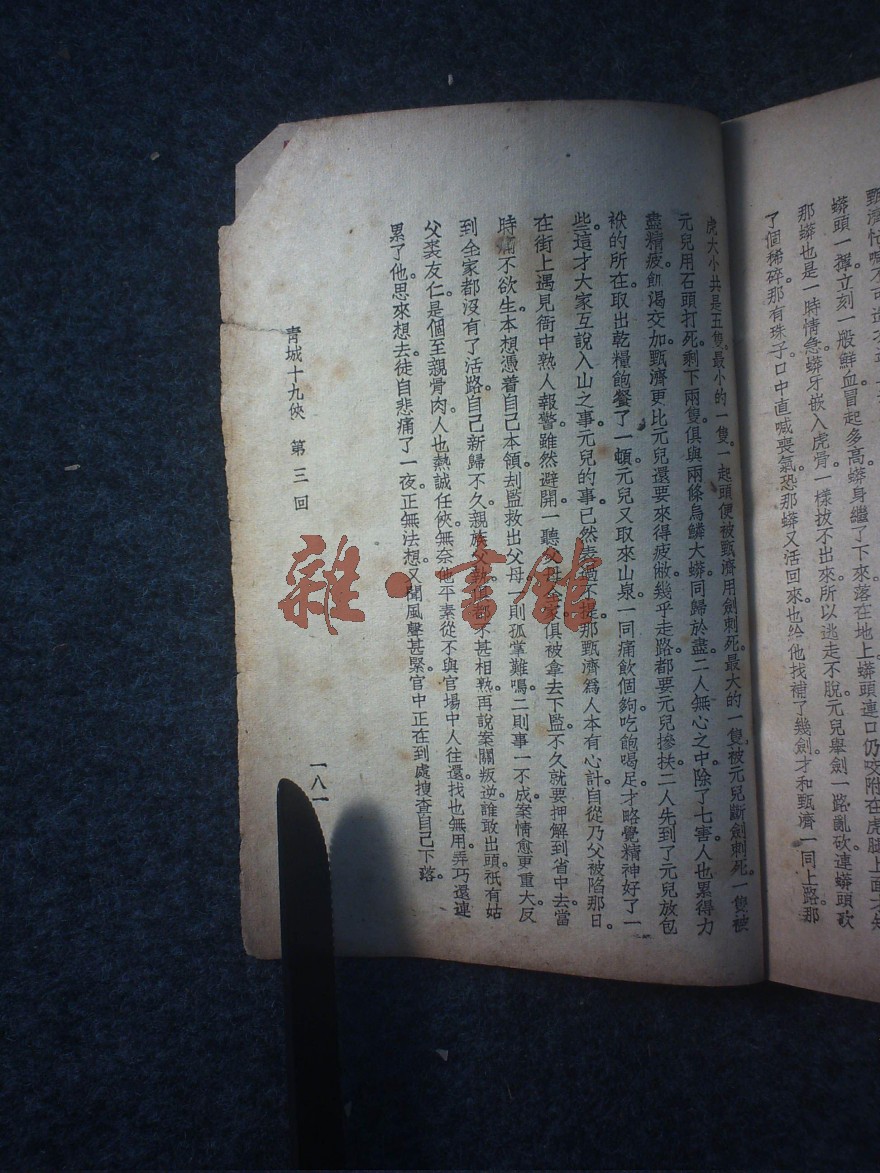 蟒頭一揮立刻一股鮮血冒起多高蟒身繼了下來落在地上蟒頭連口仍咬附在虎脚上面才知
那蟒也是一時情急蟒牙嵌入虎骨一樣拔不出來所以逃走不脫元兒舉劍一路亂砍連蟒頭砍
了個稀碎那有珠子口中直喊喪氣恐那蟒又活回來也給他找補了幾劍才和甄濟一同上路那
虎大小共是五隻最小的一隻一起頭便被甄濟用劍刺死最大的一隻被元兒斷劍刺死一隻被
元兒用石頭打死剩下兩隻俱與兩條烏鱗大蟒同歸於盡二人無心之中除了七害人也累得力
盡精疲飢渴交加甄濟更比元兒還要來得疲憊幾乎走路都要元兒摻扶二人先到了元兒放包
袱的所在取出乾糧飽餐了一頓元兒又取來山泉一同痛飲個夠吃飽喝足才略覺精神好了一
些這才大家互說入山之事元兒的事已然表過不提那甄濟為人本有心計自從乃父被陷那日
在街上遇見衙中熟人報警雖然避開一聽父母全家俱被拿去下監不久就要押解到省中去當
時痛不欲生本想憑着自己本領刦監救出父母一則孤掌難鳴二則事一不成案情愈更重大反
到全家都沒有了活路自己新歸不久親族父執俱都不甚相熟再說案關叛逆誰敢出頭祇有姑
父裘友仁是個至親骨肉人也熱誠任俠無奈他平素從不與官場中人往還找也無用弄巧還連
累了他思來想去徒自悲痛了一夜正無法想又聞風聲甚緊官中正在到處搜查自己下落
青城十九俠 第三回
一八一
雜·書館